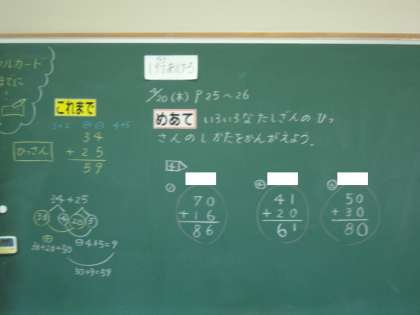 ルカード
までに
これまで
34
+ 25
59
ひっさん
34+25
30 4 20 5
30+20=50
4+5=9
50+9=59
4/20 (木) P 25〜26
めあて いろいろなたしざんのひっ
さんのしかたをかんがえよう。
70
+ 16
86
41
+ 20
61
50
+ 30
80